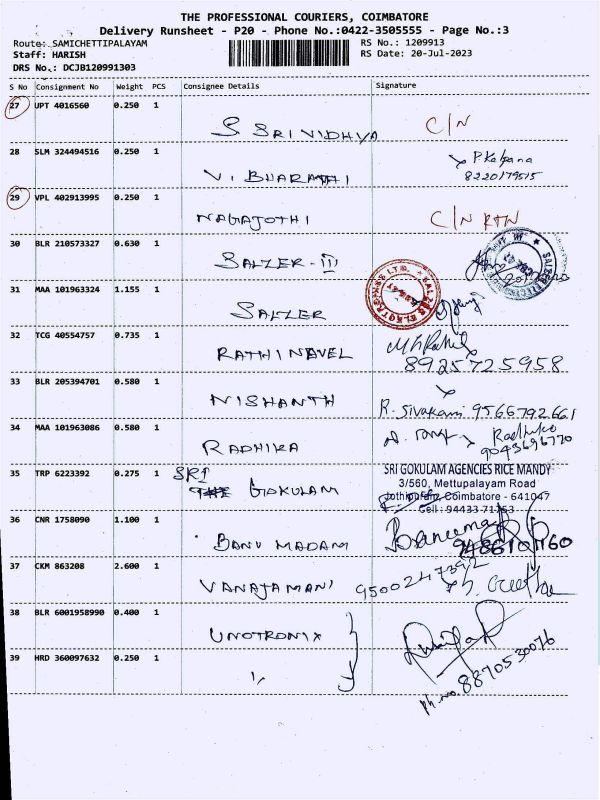 THE PROFESSIONAL COURIERS, COIMBATORE
Delivery Runsheet - P20 - Phone No.:0422-3505555 - Page No.:3
Route: SAMICHETTIPALAYAM RS No.: 1209913
Staff: HARISH RS Date: 20-Jul-2023
DRS No.: DCJB120991303
S No Consignment No Weight PCS Consignee Details Signature
27 UPT 4016560 0.250 1 S SRIVIDHYA C/N
28 SLM 324494516 0.250 1 V. BHARATHI P. Kalpana
8220179515
29 VPL 402913995 0.250 1 NAGAJOTHI C/N RTN
30 BLR 210573327 0.630 1 SALZER-III
31 MAA 101963324 1.155 1 SALZER
32 TCG 40554757 0.735 1 RATHINAVEL
8925725958
33 BLR 205394701 0.580 1 NISHANTH R. Sivakami 9566792661
34 MAA 101963086 0.580 1 RADHIKA
9043696770
35 TRP 6223392 0.275 1 SRI GOKULAM SRI GOKULAM AGENCIES RICE MANDY
3/560, Mettupalayam Road
Coimbatore - 641047
Cell : 94433
36 CNR 1758090 1.100 1 BANU MADAM
37 CKM 863208 2.600 1 VANAJAMANI 9500247392
38 BLR 6001958990 0.400 1 UNOTRONIX
39 HRD 360097632 0.250 1 ph.no. 8870530076